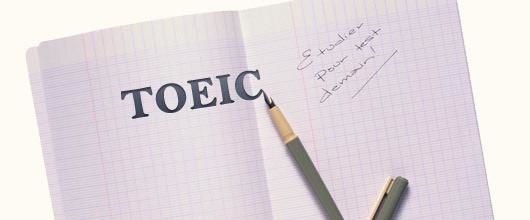 TOEIC
Etudier
pour test
demain!